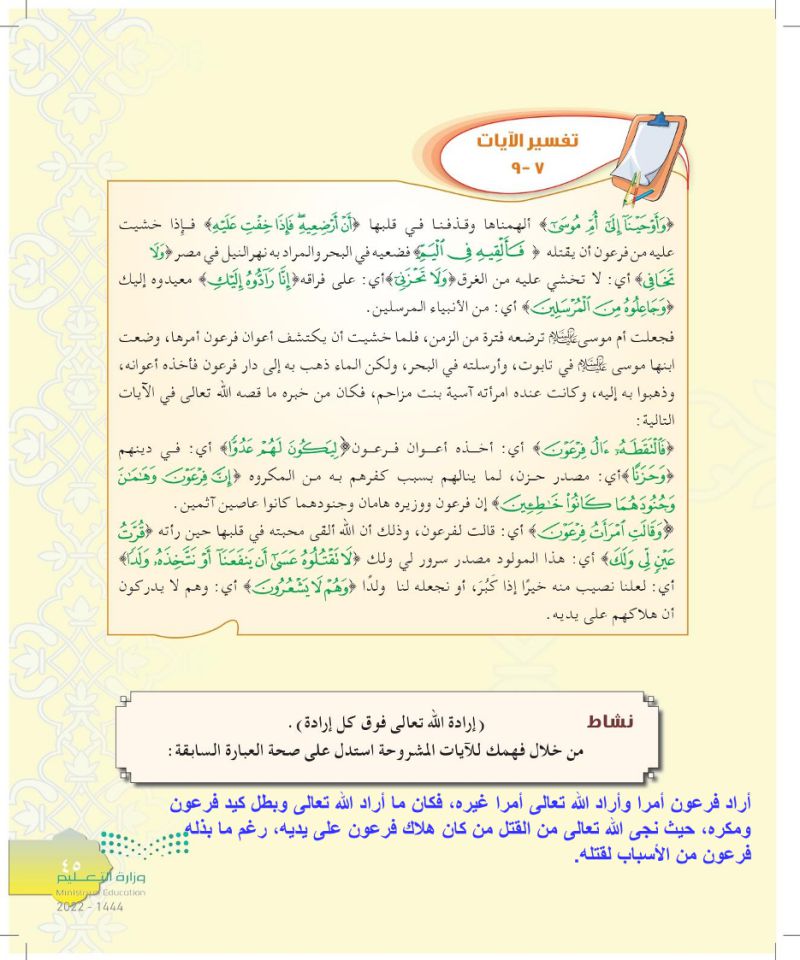 تفسير الآيات
٧ -٩
﴿وَأَوْحَيْنَآ إِلَىٰٓ أُمِّ مُوسَىٰٓ﴾ ألهمناها وقذفنا في قلبها ﴿أَنْ أَرْضِعِيهِ ۖ فَإِذَا خِفْتِ عَلَيْهِ﴾ فإذا خشيت
عليه من فرعون أن يقتله ﴿ فَأَلْقِيهِ فِى ٱلْيَمِّ﴾ فضعيه في البحر والمراد به نهر النيل في مصر ﴿وَلَا
تَخَافِى﴾ أي: لا تخشي عليه من الغرق ﴿وَلَا تَحْزَنِىٓ﴾ أي: على فراقه ﴿إِنَّا رَآدُّوهُ إِلَيْكِ﴾ معيدوه إليك
﴿وَجَاعِلُوهُ مِنَ ٱلْمُرْسَلِينَ﴾ أي: من الأنبياء المرسلين.
فجعلت أم موسى عليه السلام ترضعه فترة من الزمن، فلما خشيت أن يكتشف أعوان فرعون أمرها، وضعت
ابنها موسى عليه السلام في تابوت، وأرسلته في البحر، ولكن الماء ذهب به إلى دار فرعون فأخذه أعوانه،
وذهبوا به إليه، وكانت عنده امرأته آسية بنت مزاحم، فكان من خبره ما قصه الله تعالى في الآيات
التالية:
﴿فَٱلْتَقَطَهُۥٓ ءَالُ فِرْعَوْنَ﴾ أي: أخذه أعوان فرعون ﴿لِيَكُونَ لَهُمْ عَدُوًّا﴾ أي: في دينهم
﴿وَحَزَنًا﴾ أي: مصدر حزن، لما ينالهم بسبب كفرهم به من المكروه ﴿إِنَّ فِرْعَوْنَ وَهَٰمَٰنَ
وَجُنُودَهُمَا كَانُوا۟ خَٰطِـِٔينَ﴾ إن فرعون ووزيره هامان وجنودهما كانوا عاصين آثمين.
﴿وَقَالَتِ ٱمْرَأَتُ فِرْعَوْنَ﴾ أي: قالت لفرعون، وذلك أن الله ألقى محبته في قلبها حين رأته ﴿قُرَّتُ
عَيْنٍ لِّى وَلَكَ﴾ أي: هذا المولود مصدر سرور لي ولك ﴿لَا تَقْتُلُوهُ عَسَىٰٓ أَن يَنفَعَنَآ أَوْ نَتَّخِذَهُۥ وَلَدًا﴾
أي: لعلنا نصيب منه خيرًا إذا كَبُرَ، أو نجعله لنا ولدًا ﴿وَهُمْ لَا يَشْعُرُونَ﴾ أي: وهم لا يدركون
أن هلاكهم على يديه.
نشاط (إرادة الله تعالى فوق كل إرادة).
من خلال فهمك للآيات المشروحة استدل على صحة العبارة السابقة:
أراد فرعون أمرا وأراد الله تعالى أمرا غيره، فكان ما أراد الله تعالى وبطل كيد فرعون
ومكره، حيث نجى الله تعالى من القتل من كان هلاك فرعون على يديه، رغم ما بذله
فرعون من الأسباب لقتله.
٤٥
وزارة التعليم
Ministry of Education
2022 - 1444